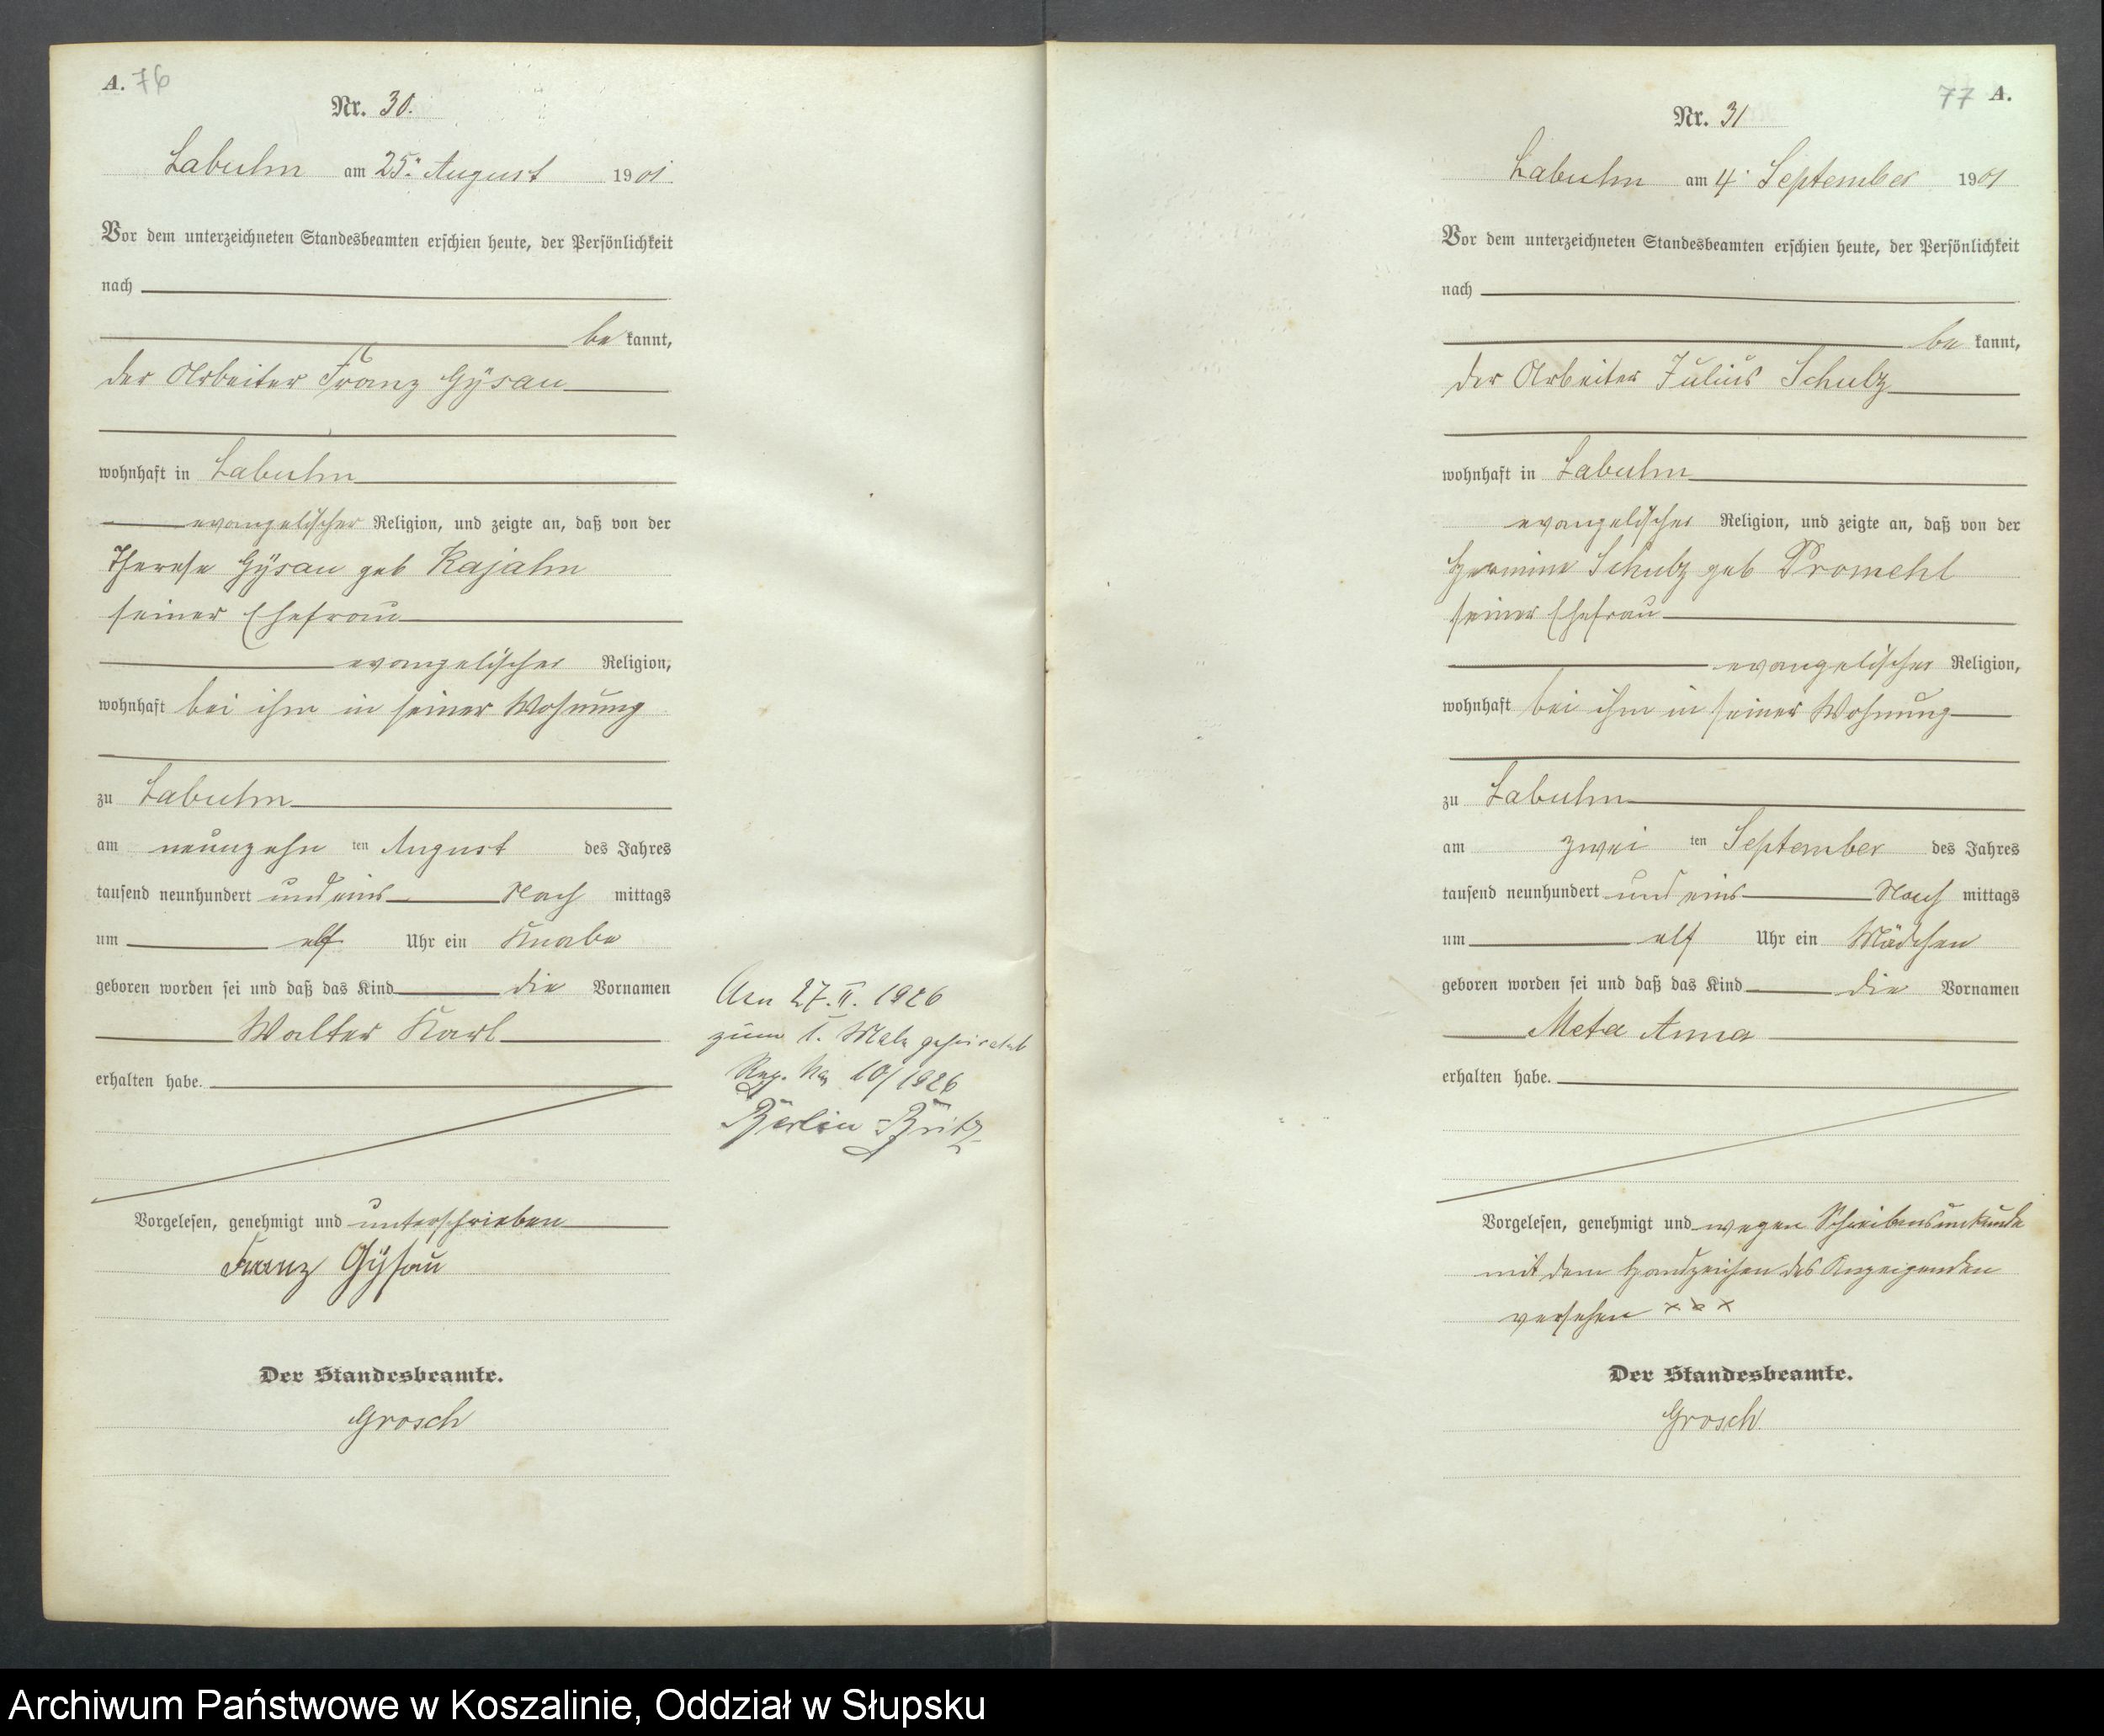 A. 76
Nr. 30.
Labuhn am 25. August 1901.
Vor dem unterzeichneten Standesbeamten erschien heute, der Persönlichkeit
nach
be kannt,
der Arbeiter Franz Gÿsau
wohnhaft in Labuhn
evangelischer Religion, und zeigte an, daß von der
Therese Gÿsau geb Kajahn
seiner Ehefrau
evangelischer Religion,
wohnhaft bei ihm in seiner Wohnung
zu Labuhn
am neunzehn ten August des Jahres
tausend neunhundert und eins Nach mittags
um elf Uhr ein Knabe
geboren worden sei und daß das Kind die Vornamen
Walter Karl
erhalten habe.
Vorgelesen, genehmigt und unterschrieben
Franz Gÿsau
Der Standesbeamte.
Grosch
Am 27. II. 1926
zum 1. Male geheiratet
Reg. No 10/1926
Berlin-Britz
77 A.
Nr. 31
Labuhn am 4. September 1901
Vor dem unterzeichneten Standesbeamten erschien heute, der Persönlichkeit
nach
be kannt,
der Arbeiter Julius Schulz
wohnhaft in Labuhn
evangelischer Religion, und zeigte an, daß von der
Hermine Schulz geb Promehl
seiner Ehefrau
evangelischer Religion,
wohnhaft bei ihm in seiner Wohnung
zu Labuhn
am zwei ten September des Jahres
tausend neunhundert und eins Nach mittags
um elf Uhr ein Mädchen
geboren worden sei und daß das Kind die Vornamen
Meta Anna
erhalten habe.
Vorgelesen, genehmigt und wegen Schreibensunkunde
mit dem Handzeichen des Anzeigenden
versehen x x x
Der Standesbeamte.
Grosch
Archiwum Państwowe w Koszalinie, Oddział w Słupsku